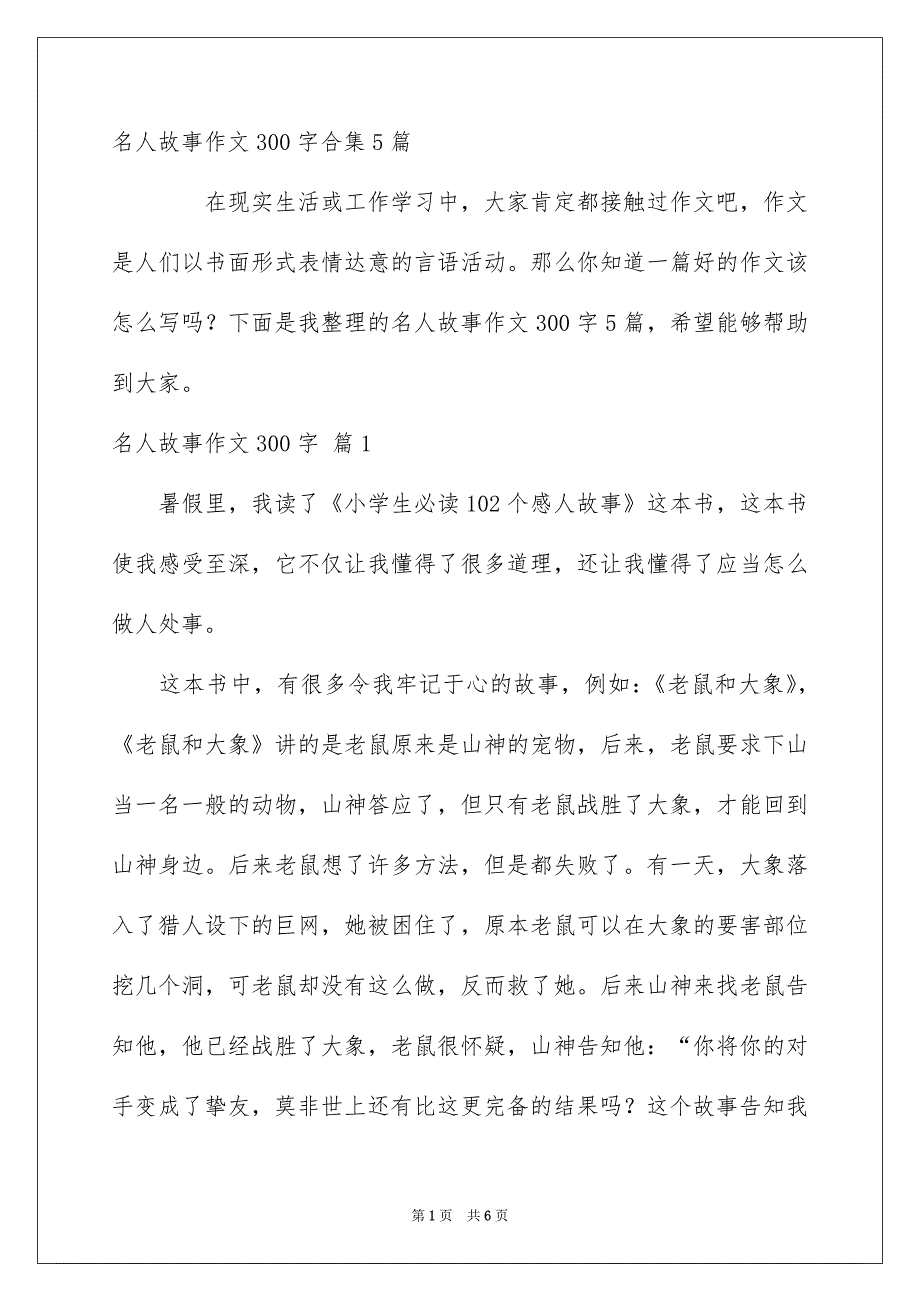 名人故事作文300字合集5篇
在现实生活或工作学习中，大家肯定都接触过作文吧，作文
是人们以书面形式表情达意的言语活动。那么你知道一篇好的作文该
怎么写吗？下面是我整理的名人故事作文300字5篇，希望能够帮助
到大家。
名人故事作文300字 篇1
暑假里，我读了《小学生必读102个感人故事》这本书，这本书
使我感受至深，它不仅让我懂得了很多道理，还让我懂得了应当怎么
做人处事。
这本书中，有很多令我牢记于心的故事，例如：《老鼠和大象》，
《老鼠和大象》讲的是老鼠原来是山神的宠物，后来，老鼠要求下山
当一名一般的动物，山神答应了，但只有老鼠战胜了大象，才能回到
山神身边。后来老鼠想了许多方法，但是都失败了。有一天，大象落
入了猎人设下的巨网，她被困住了，原本老鼠可以在大象的要害部位
挖几个洞，可老鼠却没有这么做，反而救了她。后来山神来找老鼠告
知他，他已经战胜了大象，老鼠很怀疑，山神告知他：“你将你的对
手变成了挚友，莫非世上还有比这更完备的结果吗？这个故事告知我
第1页 共6页